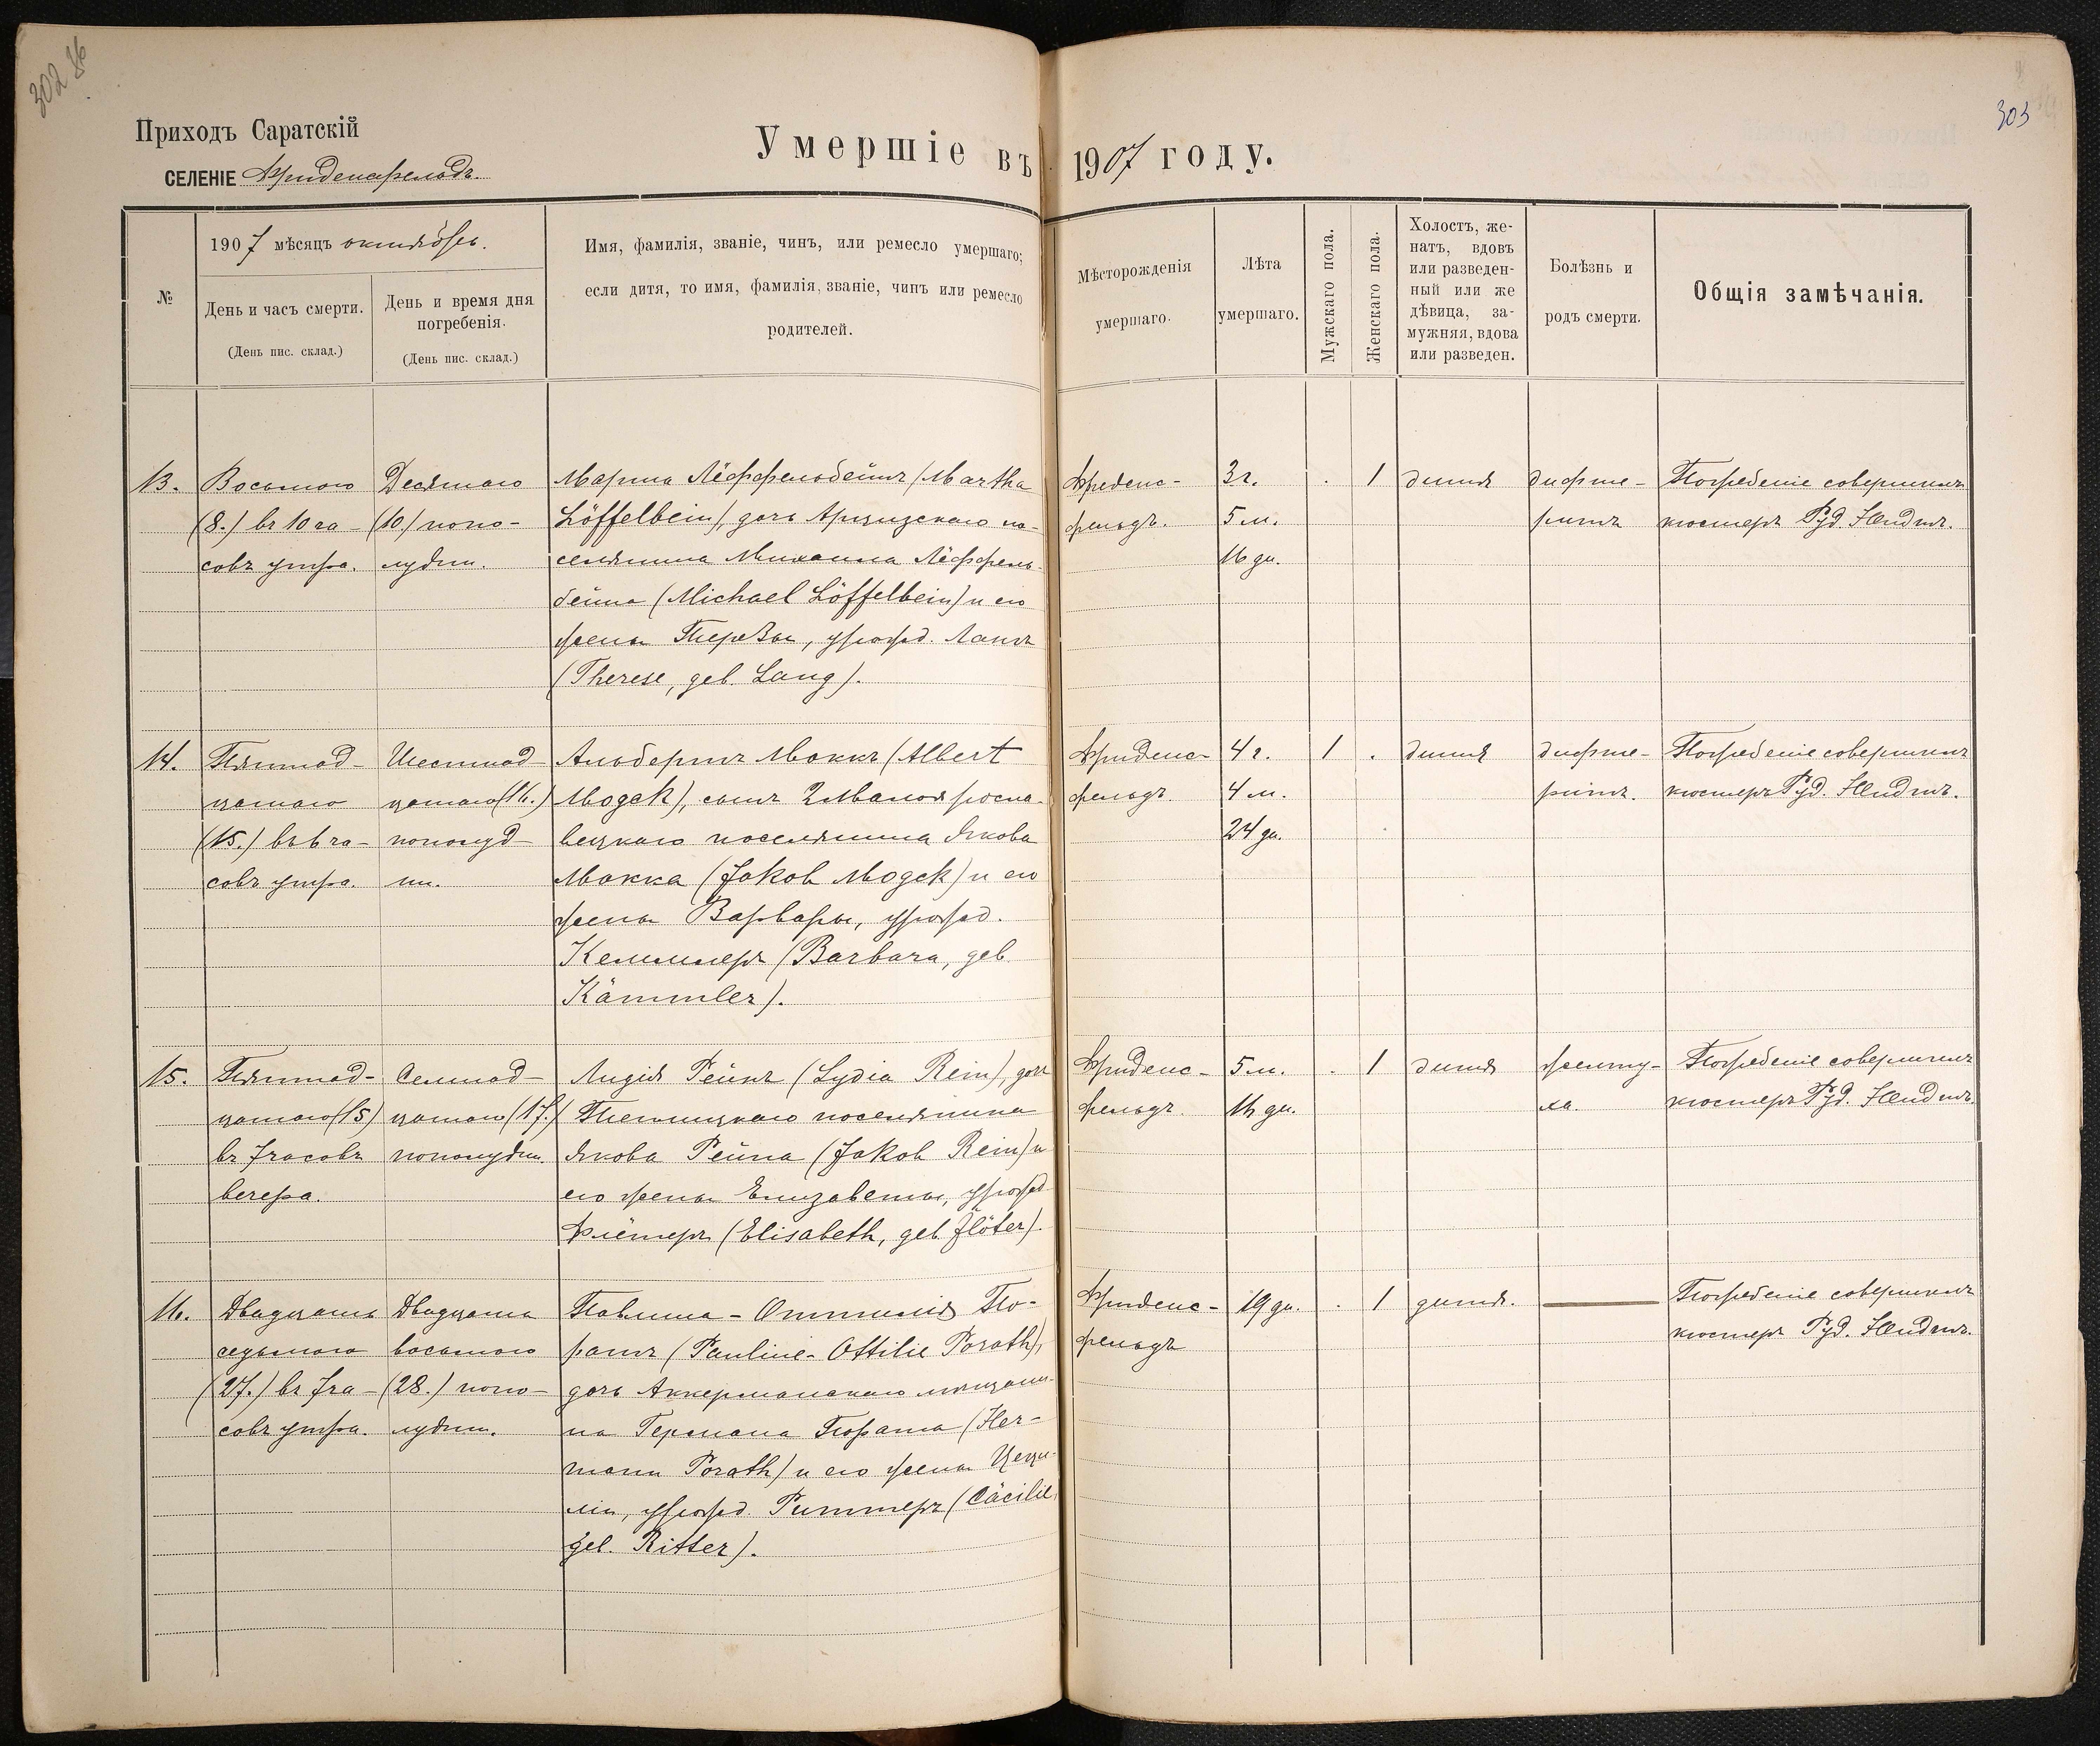 302
Приходъ Саратскій
СЕЛЕНІЕ Фриденсфельдъ.
Умершіе въ 1907 году.
303
№
1907 мѣсяцъ октябрь.
День и часъ смерти.
(День пис. склад.)
День и время дня
погребенія.
(День пис. склад.)
Имя, фамилія, званіе, чинъ, или ремесло умершаго;
если дитя, то имя, фамилія, званіе, чинъ или ремесло
родителей.
Мѣсторожденія
умершаго.
Лѣта
умершаго.
Мужскаго пола.
Женскаго пола.
Холостъ, же-
натъ, вдовъ
или разведен-
ный или же
дѣвица, за-
мужняя, вдова
или разведен.
Болѣзнь и
родъ смерти.
Общія замѣчанія.
13.
Восьмого
(8.) въ 10 ча-
совъ утра.
Десятаго
(10.) попо-
лудни.
Марта Лёффельбейнъ (Martha
Löffelbein), дочь Арцизскаго по-
селянина Михаила Лёффель-
бейна (Michael Löffelbein) и его
жены Терезы, урожд. Лангъ
(Therese, geb. Lang).
Фриденс-
фельдъ.
3 г.
5 м.
16 дн.
. 1
дитя
дифте-
ритъ
Погребеніе совершилъ
кюстеръ Руд.
14.
Пятнад-
цатаго
(15.) въ 6 ча-
совъ утра.
Шестнад-
цатаго (16.)
пополуд-
ни.
Альбертъ Моккъ (Albert
Mogck), сынъ 2 Малояросла-
вецкаго поселянина Якова
Мокка (Jakob Mogck) и его
жены Варвары, урожд.
Кеммлеръ (Barbara, geb.
Kämmler).
Фриденс-
фельдъ.
4 г.
4 м.
24 дн.
1 .
дитя
дифте-
ритъ.
Погребеніе совершилъ
кюстеръ Руд.
15.
Пятнад-
цатаго (15)
въ 7 часовъ
вечера.
Семнад-
цатаго (17.)
пополудни.
Лидія Рейнъ (Lydia Rein), дочь
Теплицкаго поселянина
Якова Рейна (Jakob Rein) и
его жены Елизаветы, урожд.
Флётеръ (Elisabeth, geb. Flöter).
Фриденс-
фельдъ.
5 м.
16 дн.
. 1
дитя
желту-
ха.
Погребеніе совершилъ
кюстеръ Руд.
16.
Двадцать
седьмого
(27.) въ 7 ча-
совъ утра.
Двадцать
восьмого
(28.) попо-
лудни.
Павлина-Оттилія По-
ратъ (Pauline-Ottilie Porath),
дочь Аккерманскаго мѣщани-
на Германа Пората (Her-
mann Porath) и его жены Цеци-
ліи, урожд. Риттеръ (Cäcilie,
geb. Ritter).
Фриденс-
фельдъ
19 дн.
. 1
дитя.
Погребеніе совершилъ
кюстеръ Руд.